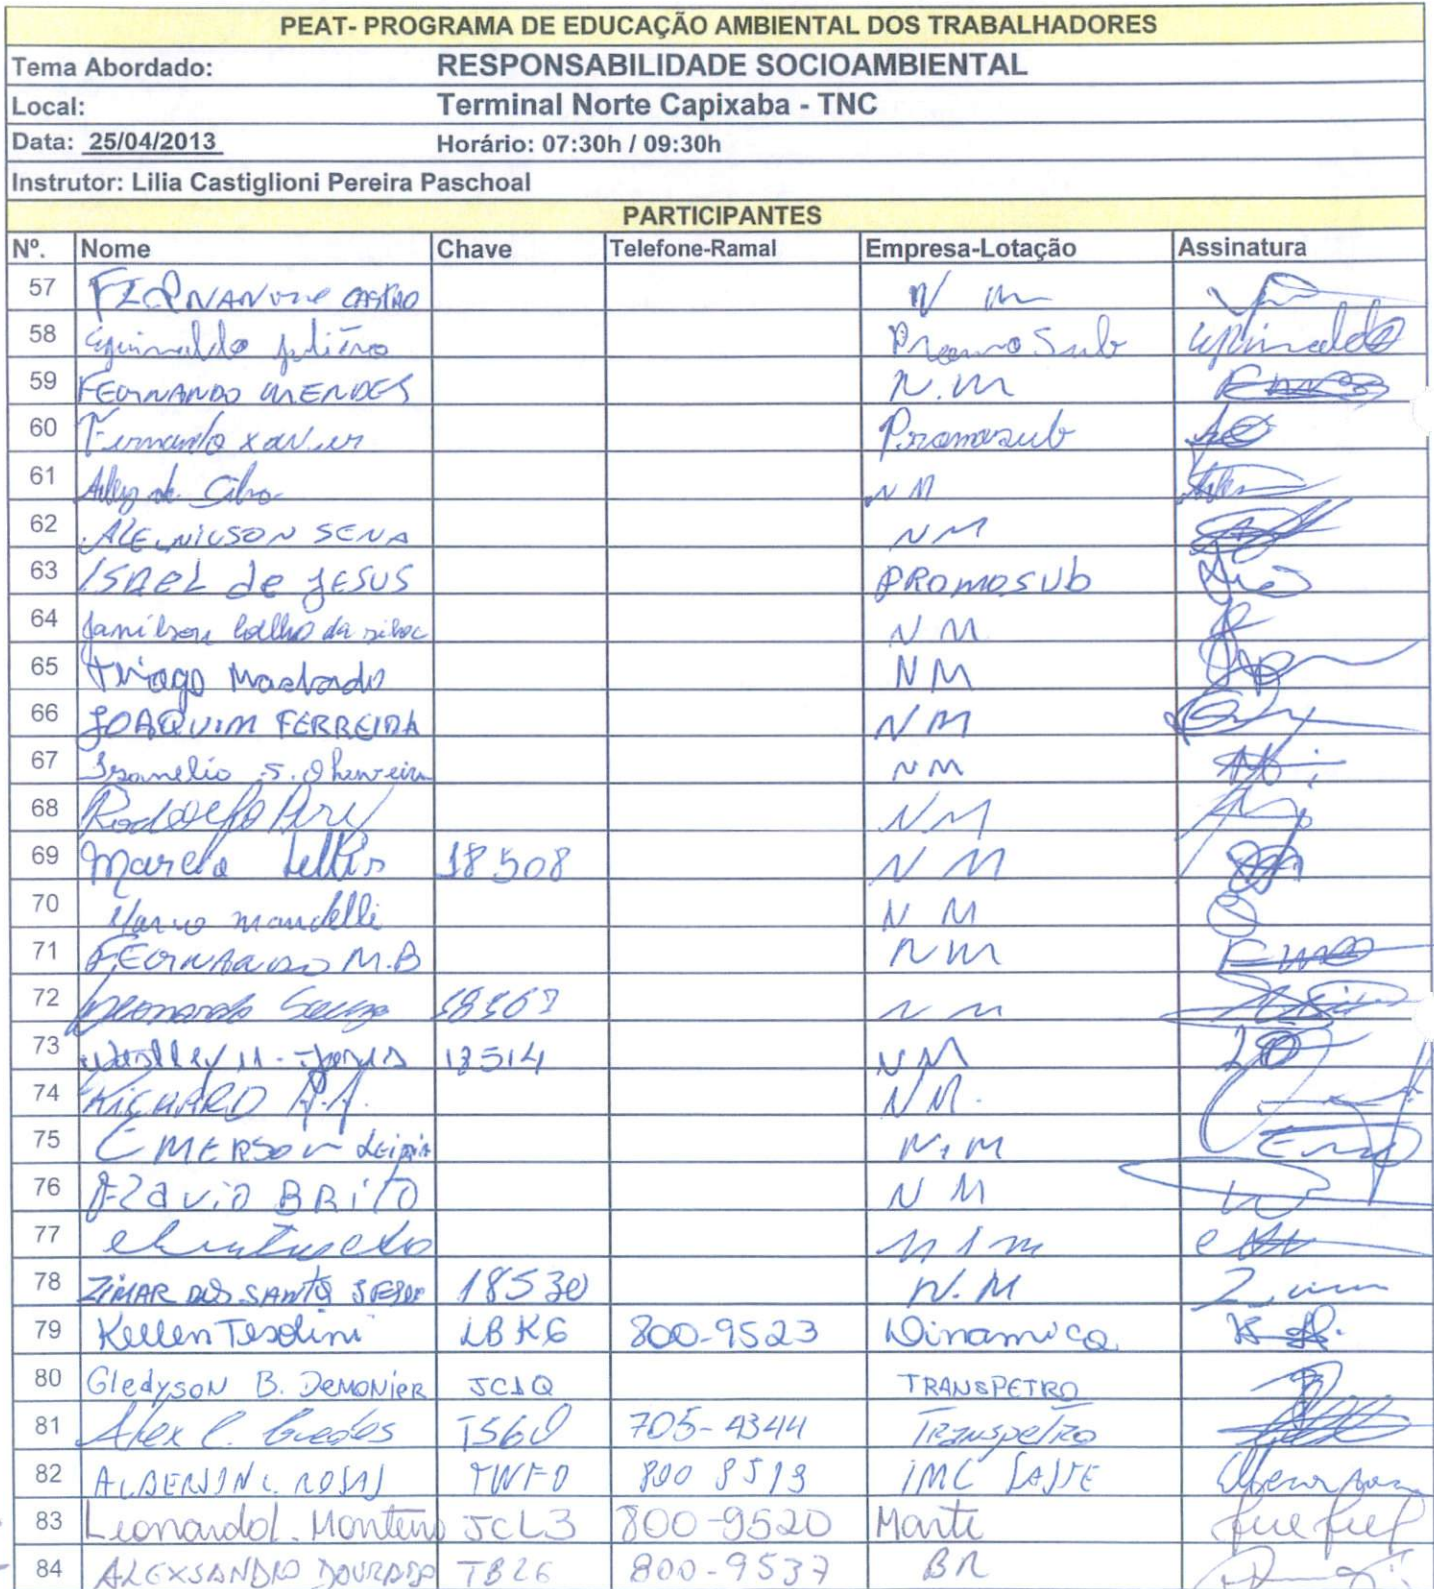 PEAT- PROGRAMA DE EDUCAÇÃO AMBIENTAL DOS TRABALHADORES
Tema Abordado: RESPONSABILIDADE SOCIOAMBIENTAL
Local: Terminal Norte Capixaba - TNC
Data: 25/04/2013 Horário: 07:30h / 09:30h
Instrutor: Lilia Castiglioni Pereira Paschoal
PARTICIPANTES
Nº. Nome Chave Telefone-Ramal Empresa-Lotação Assinatura
57 CASTRO N M
58 PromoSub
59 FERNANDO MENDES N.M
60 Fernando xavier Promosub
61 NM
62 SENA NM
63 ISAEL de JESUS PROMOSUb
64 Janilson Coelho da silva NM
65 Thiago Machado NM
66 JOAQUIM FERREIRA NM
67 S. Oliveira NM
68 Rodolfo NM
69 Marcelo 18508 NM
70 mandelli NM
71 FERNANDO M.B NM
72 Leonardo Souza NM
73 18514 NM
74 RICHARD A.A. NM.
75 EMERSON N.M
76 FlaviO BRITO NM
77 N/M
78 ZIMAR DOS SANTOS 18530 N.M
79 Kellen Tesolini LBKG 800-9523 Dinamica
80 Gledyson B. Demonier JC1Q TRANSPETRO
81 Alex C. Guedes TS60 705-4344 Transpetro
82 TWFO IMC SASTE
83 Leonardo L. Monteiro JCL3 800-9520 Marte
84 ALEXSANDRO DOURADO TB26 800-9537 BR